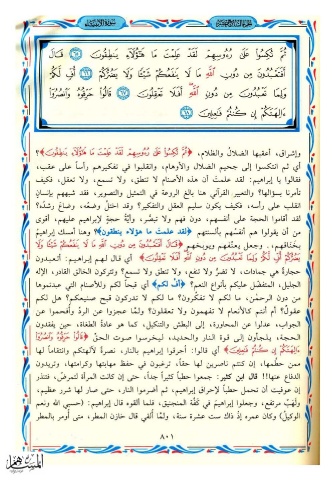 سورة الأنبياء
ثُمَّ نُكِسُوا عَلَىٰ رُءُوسِهِمْ لَقَدْ عَلِمْتَ مَا هَٰؤُلَاءِ يَنطِقُونَ ﴿٦٥﴾ قَالَ
أَفَتَعْبُدُونَ مِن دُونِ اللَّهِ مَا لَا يَنفَعُكُمْ شَيْئًا وَلَا يَضُرُّكُمْ ﴿٦٦﴾ أُفٍّ لَّكُمْ
وَلِمَا تَعْبُدُونَ مِن دُونِ اللَّهِ أَفَلَا تَعْقِلُونَ ﴿٦٧﴾ قَالُوا حَرِّقُوهُ وَانصُرُوا
آلِهَتَكُمْ إِن كُنتُمْ فَاعِلِينَ ﴿٦٨﴾
وإشراق، أعقبها الضلال والظلام، ﴿ثُمَّ نُكِسُوا عَلَىٰ رُءُوسِهِمْ لَقَدْ عَلِمْتَ مَا هَٰؤُلَاءِ يَنطِقُونَ﴾؟
أي ثم انتكسوا إلى جحيم الضلال والأوهام، وانقلبوا في تفكيرهم رأساً على عقب،
فقالوا يا إبراهيم: لقد علمت أن هذه الأصنام لا تنطق، ولا تسمع، ولا تعقل، فكيف
تأمرنا بسؤالها؟ والتعبير القرآني هنا بالغ الروعة في التمثيل والتصوير، فقد شبههم بإنسانٍ
انقلب على رأسه، فكيف يكون سليم العقل والتفكير؟ وقد اختلَّ وضعُه، وضاع رشدُه؟
لقد أقاموا الحجة على أنفسهم، دون فهم ولا تبصُّر، وأيَّةُ حجةٍ لإبراهيم عليهم، أقوى
من أن يقولوا هم أنفسُهم بألسنتهم ﴿لقد علمت ما هؤلاء ينطقون﴾؟ وهنا أمسك إبراهيمُ
بخناقهم، وجعل يعنِّفهم ويوبخهم ﴿قَالَ أَفَتَعْبُدُونَ مِن دُونِ اللَّهِ مَا لَا يَنفَعُكُمْ شَيْئًا وَلَا
يَضُرُّكُمْ أُفٍّ لَّكُمْ وَلِمَا تَعْبُدُونَ مِن دُونِ اللَّهِ أَفَلَا تَعْقِلُونَ﴾؟ أي قال لهم إبراهيم: أتعبدون
حجارةً هي جمادات، لا تضرُّ ولا تنفع، ولا تنطق ولا تسمع؟ وتتركون الخالق القادر، الإله
الجليل، المتفضل عليكم بأنواع النعم؟ ﴿أفٍّ لكم﴾ أي قبحاً لكم وللأصنام التي عبدتموها
من دون الرحمن، ما لكم لا تفكرون؟ ما لكم لا تدركون قبح صنيعكم؟ هل لكم
عقول؟ أم أنتم كالأنعام لا تفهمون ولا تعقلون؟ ولمَّا عجزوا عن الردِّ وأُفحموا عن
الجواب، عدلوا عن المحاورة، إلى البطش والتنكيل، كما هو عادةُ الطغاة، حين يفقدون
الحجة، يلجأون إلى قوة النار والحديد، ليخرسوا صوت الحقِّ ﴿قَالُوا حَرِّقُوهُ وَانصُرُوا
آلِهَتَكُمْ إِن كُنتُمْ فَاعِلِينَ﴾ أي قالوا: أحرقوا إبراهيم بالنار، نصرةً لآلهتكم وانتقاماً لها
ممن حطَّمها، إن كنتم ناصرين لها حقاً، ترغبون في حفظ مهابتها وكرامتها، وتريدون
الدفاع عنها!! قال ابن كثير: جمعوا حطباً كثيراً جداً، حتى إن كانت المرأة لتمرضُ، فتنذر
إن عوفيت أن تحمل حطباً لإحراق إبراهيم، ثم أضرموا النار، حتى صار لها شرر عظيم،
ولهبٌ مرتفع، وجعلوا إبراهيم في كفَّة المنجنيق، فلما ألقوه قال إبراهيم: (حسبي الله ونعم
الوكيل) وكان عمره إذ ذاك ست عشرة سنة، ولمَّا أُلقي قال خازن المطر، متى أومر بالمطر
٨٠١